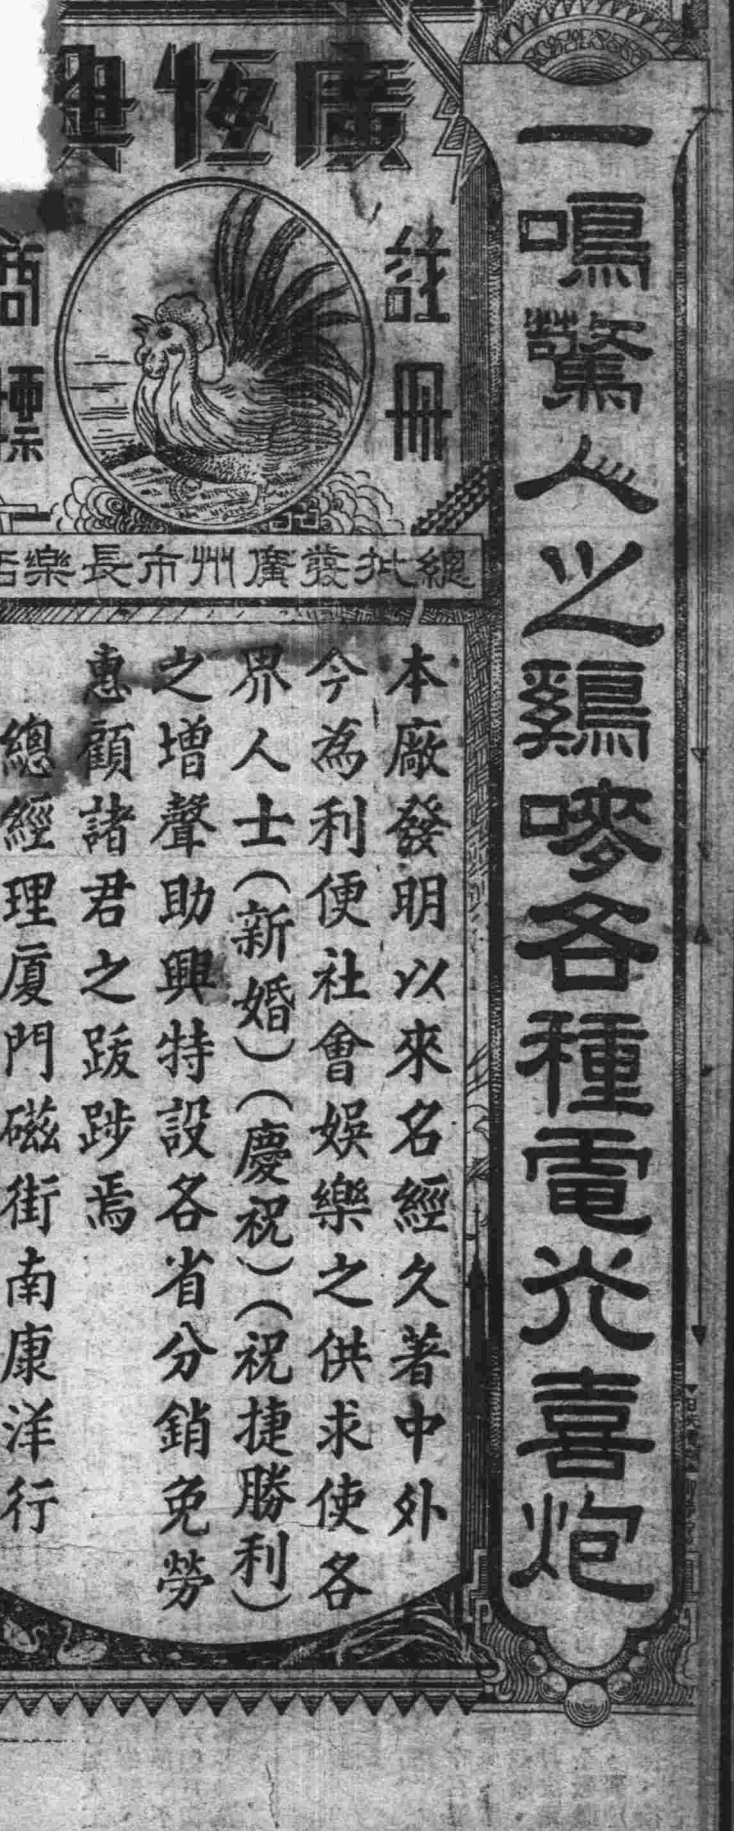 一鳴驚人之鷄嘜各種電光喜炮
廣恆興
註冊
商標
總批發廣州市長樂
本廠發明以來名經久著中外
今為利便社會娛樂之供求使各
界人士(新婚)(慶祝)(祝捷勝利)
之增聲助興特設各省分銷免勞
惠顧諸君之跋踄焉
總經理廈門磁街南康洋行